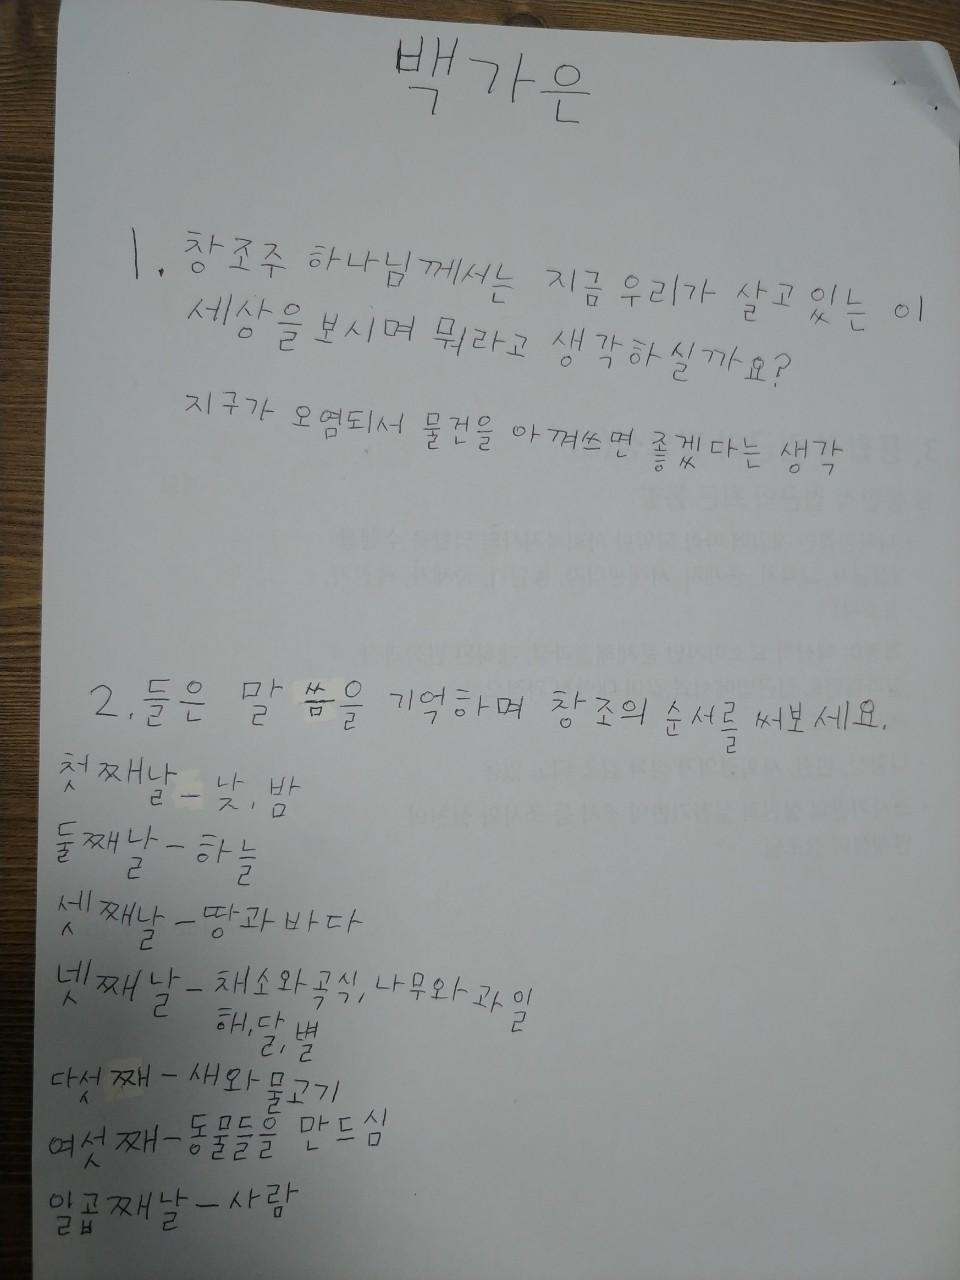 백가은
1. 창조주 하나님께서는 지금 우리가 살고 있는 이
세상을 보시며 뭐라고 생각하실까요?
지구가 오염되서 물건을 아껴쓰면 좋겠다는 생각
2. 들은 말씀을 기억하며 창조의 순서를 써보세요.
첫째날 - 낮, 밤
둘째날 - 하늘
셋째날 - 땅과 바다
넷째날 - 채소와 곡식, 나무와 과일
해, 달, 별
다섯째 - 새와 물고기
여섯째 - 동물들을 만드심
일곱째날 - 사람